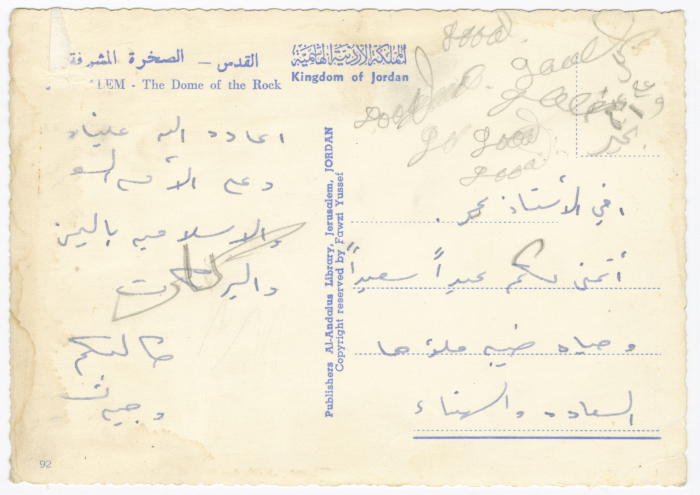 القدس – الصخرة المشرفة
LEM - The Dome of the Rock
المملكة الأردنية الهاشمية
Kingdom of Jordan
good
good
good
go good
good
Publishers Al-Andalus Library, Jerusalem, JORDAN
Copyright reserved by Fawzi Yussef
أخي الأستاذ
أتمنى لكم عيداً سعيداً
وحياه هنيه ملؤها
السعاده والهناء
اعاده الله علينا
وعلى الأمه
والاسلاميه باليمن
والبركات
وجيه
92